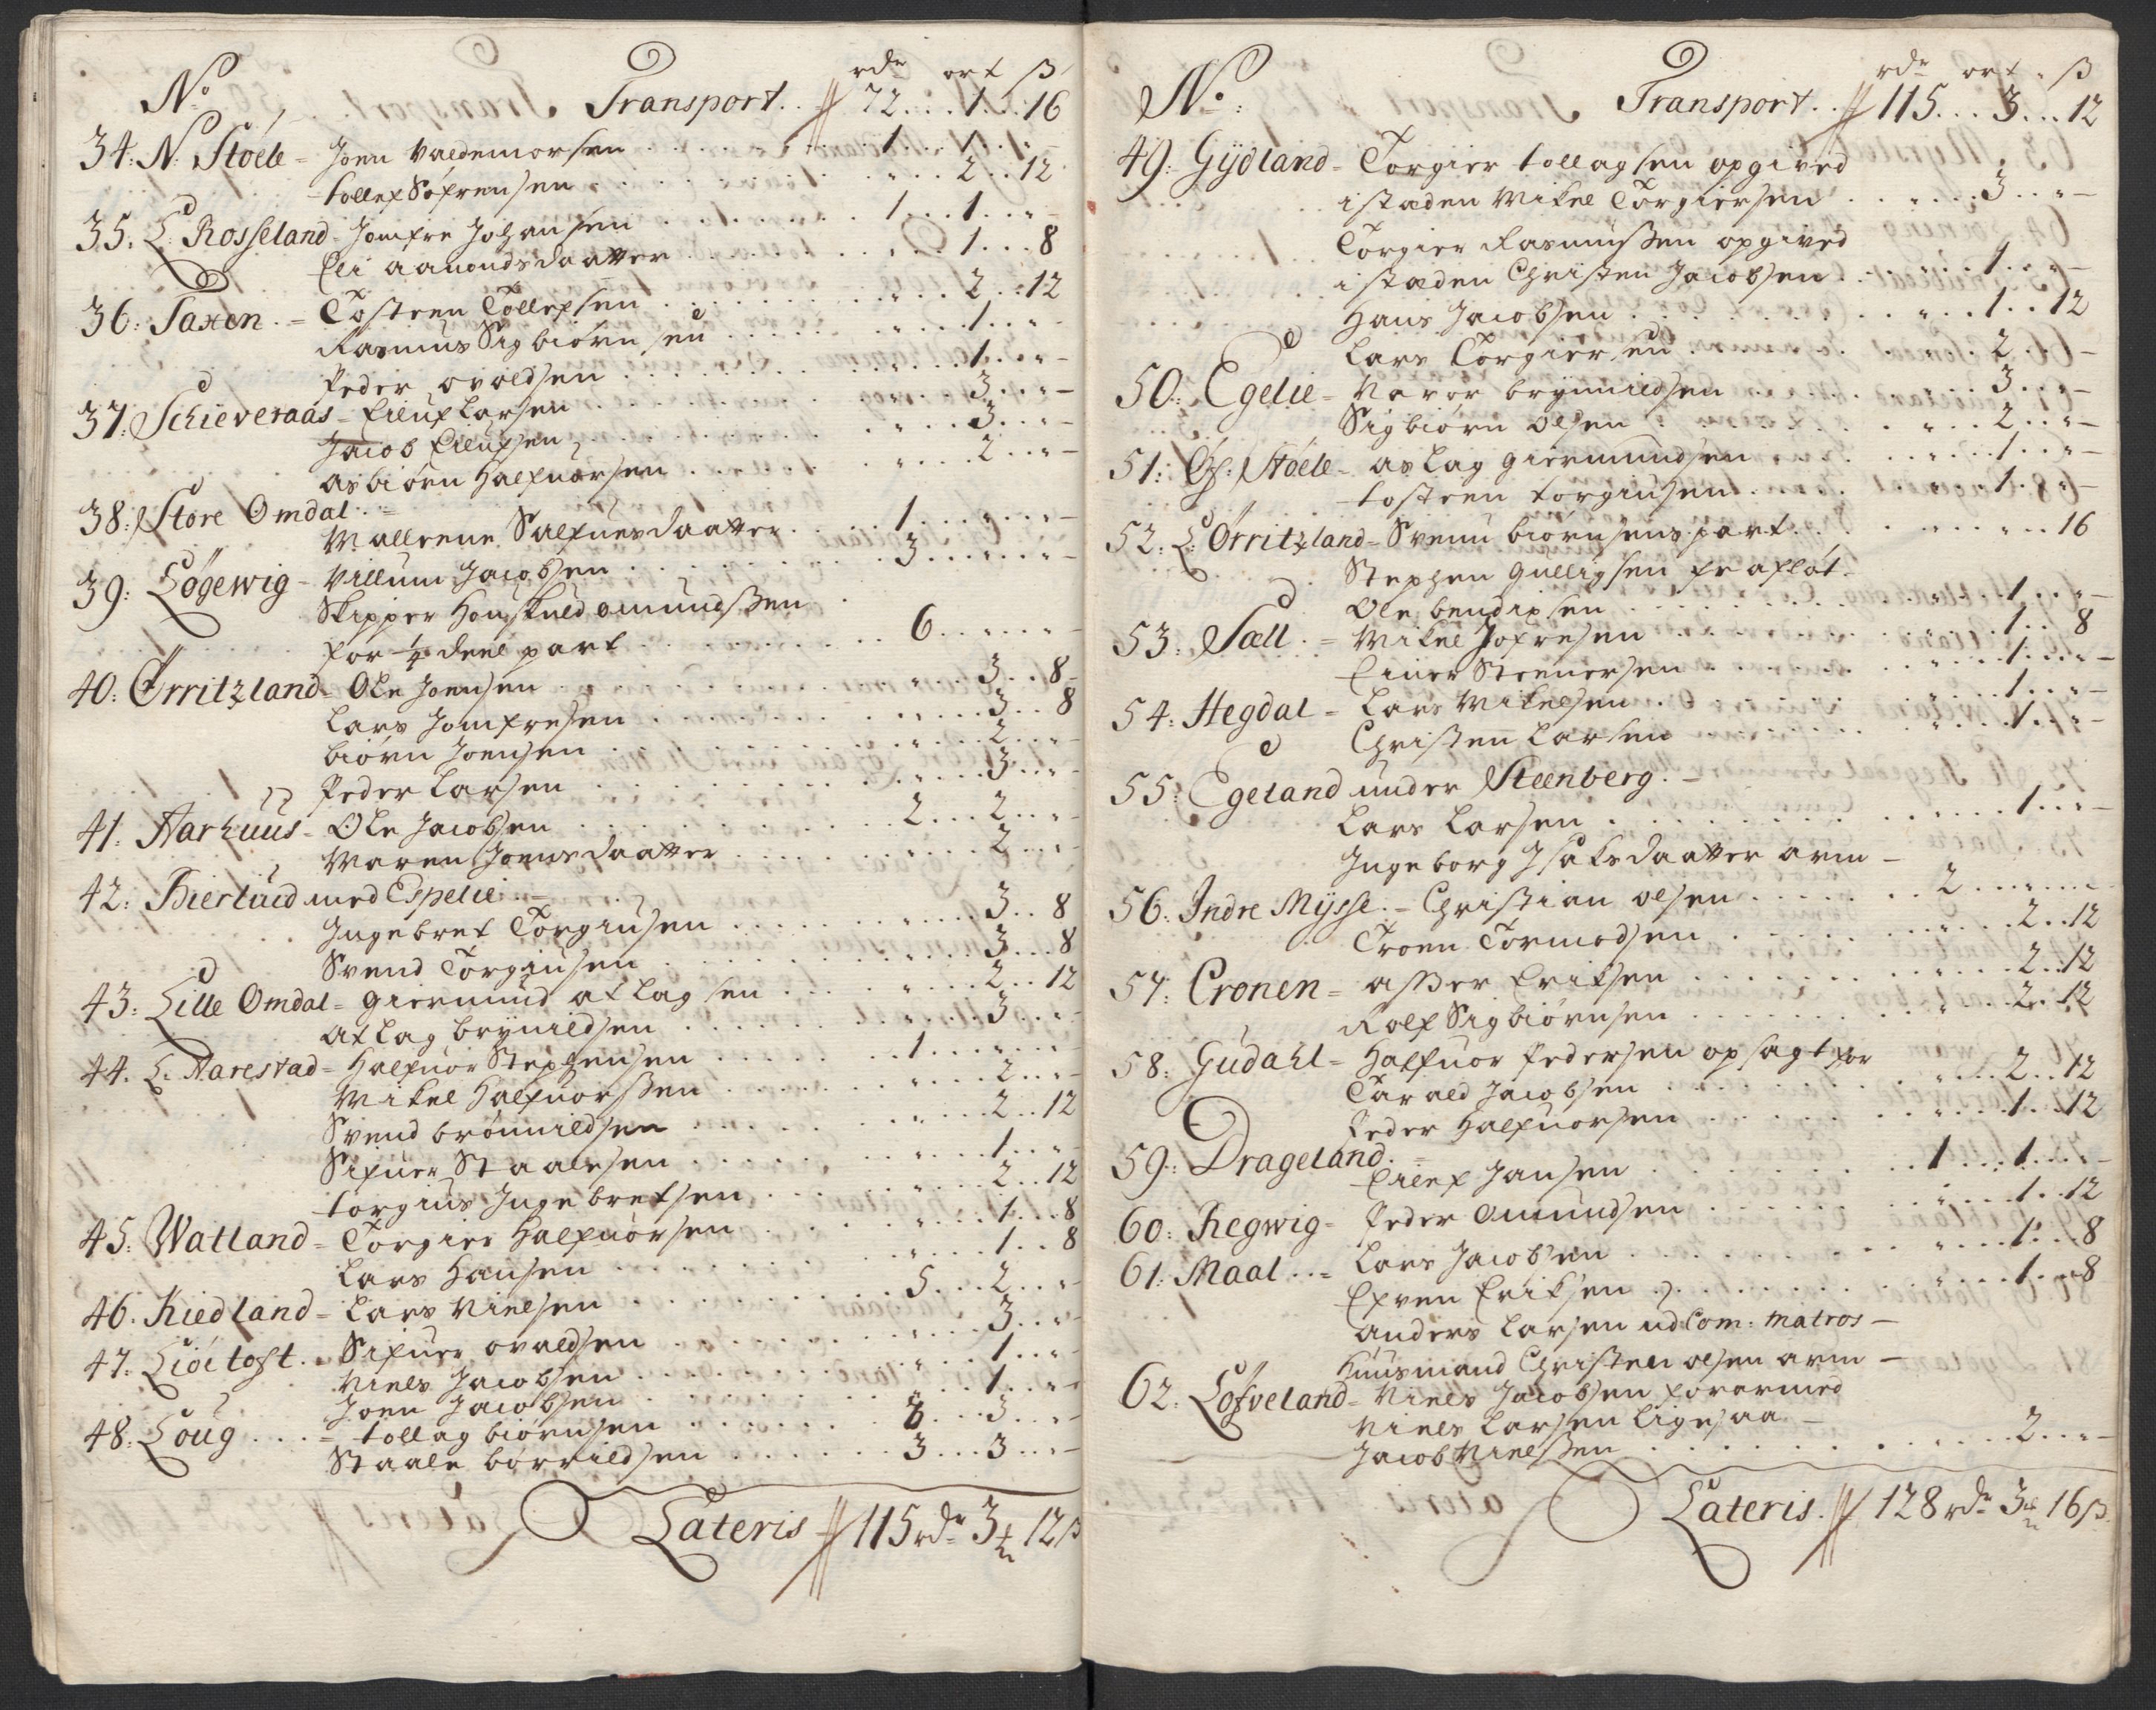 rdr ort ß
No Transport . . 72 . . . 1 . . 16
34: N: Støele = Joen Valdemorsen . . . 1 . . . " . . "
tollef Søfrensen . . . " . . . 2 . . 12
35. L: Rosseland = Jomfre Johansen . . . 1 . . . 1 . . "
Eli Aanondsdaatter . . . " . . 1 . . . 8
36: Saxen . = Tosteen Tollefsen . . . " . . . 2 . . 12
Rasmus Sigbiørnsen . . . " . . . 1 . . "
Peder ovaldsen . . . 1 . . " -
37: Schieveraas = Eiluf Larsen . . . 3 . . " -
Jacob Eilufsen . . . " . . . 3 . . " -
asbiørn Halfuorsen . . . " . . . 2 . . " -
38: Store Omdal . =
Mallene Salfuesdaatter . . . 1 . . . " . . " -
39: Løgewig = Villum Jacobsen . . . 3 . . . " . . " -
Skipper Houskuld omundssen .
for 1/4 deel part . . . 6 . . . " . . " -
40: Ørritzland = Ole Joensen . . . " . . . 3 . . 8 -
Lars Jomfresen . . . " . . . 3 . . 8
biørn Joensen . . . " . . . 2 . . " -
Peder Larsen . . . " . . . 3 . . " -
41: Aarhuus = Ole Jacobsen . . . 2 . . . 2 . . " -
Maren Joensdaatter . . . " . . . 2 . . " -
42: Hierlaid med Espelie . =
Ingebret Torgiusen . . . " . . . 3 . . 8
Svend Torgiusen . . . " . . . 3 . . 8
43: Lille Omdal = giermund atlagsen . . . " . . . 2 . . 12
atlag brynildsen . . . " . . . 3 . . " -
44. L: Aarestad = Halfuor Stephensen . . . 1 . . . " . . " -
Mikel Halfuorssen . . . " . . . 2 . . " -
Svend brønnildsen . . . " . . . 2 . . 12
Sifuer Staalesen . . . " . . . 1 . . " -
torgius Ingebretsen . . . " . . . 2 . . 12
45: Watland = Torgier Halfuorsen . . . " . . . 1 . . 8
Lars Hansen . . . " . . . 1 . . 8
46. Kiedland = Lars Nielsen . . . 5 . . . 2 . . " -
47: Liøitofst . = Sifuer ovaldsen . . . " . . . 3 . . " -
Niels Jacobsen . . . " . . . 1 . . " -
Joen Jacobsen . . . 1 . . " -
48: Loug . . . = tollag biørnsen . . . 3 . . " -
Staale børrildsen . . . 3 . . . 3 . . " -
Lateris 115 rdr 3 12 ß
rdr ort ß
No: Transport . . 115 . . . 3 . . . 12
49: Gydland = Torgier tollagsen opgived
i stæden Mikel Torgiersen . . . 3 . . " -
Torgier Rasmussen opgived
i stæden Christen Jacobsen . . . " . . . 1 . . " -
Hans Jacobsen . . . " . . . 1 . . 12
Lars Torgiersen . . . 2 . . " -
50: Egelie = Narør brynnildsen . . . 3 . . " -
Sigbiørn olsen . . . " . . . 2 . . " -
51: Ø: Støele = aslag giermundsen . . . " . . . 1 . . " -
tosteen torgiusen . . . " . . . 1 . . " -
52: L: Ørritzland = Svenn biørnsens part . . . " . . . " . . 16
Stephen gulligsen frafløt -
Ole bendixsen . . . " . . . 1 . . " -
53: Sæll . = Mikel Jofresen . . . " . . . 1 . . 8
Einer Steenersen . . . " . . . 1 . . " -
54: Hegdal = Lars Mikelsen . . . " . . . 1 . . " -
Christen Larsen . . . " . . . 1 . . " -
55: Egeland under Steenberg . =
Lars Larsen . . . " . . . 1 . . " -
Ingeborg Isaksdaatter arm -
56: Indre Mysse . = Christian olsen . . . 2 . . . " . . "
Troen Tormodsen . . . " . . . 2 . . 12
57: Cronen = asser Eriksen . . . " . . . 2 . . 12
Rolf Sigbiørnsen . . . " . . . 2 . . 12
58: Gudahl = Halfuor Pedersen opsagt for
Tarald Jacobsen . . . " . . . 2 . . 12
Peder Halfuorsen . . . " . . . 1 . . 12
59: Drageland . =
Eilef Jansen . . . 1 . . . 1 . . " -
60: Regwig = Peder Omundsen . . . " . . . 1 . . 12
61: Maal . . = Lars Jacobsen . . . " . . . 1 . . 8
Efven Eriksen . . . " . . . 1 . . 8
anders Larsen ud Com: matros -
Huusmand Christen olsen arm -
62: Løfveland = Niels Jacobsen forarmed
Niels Larsen ligesaa -
Jacob Nielssen . . . 2 . . " -
Lateris . 128 rdr 3 16 ß